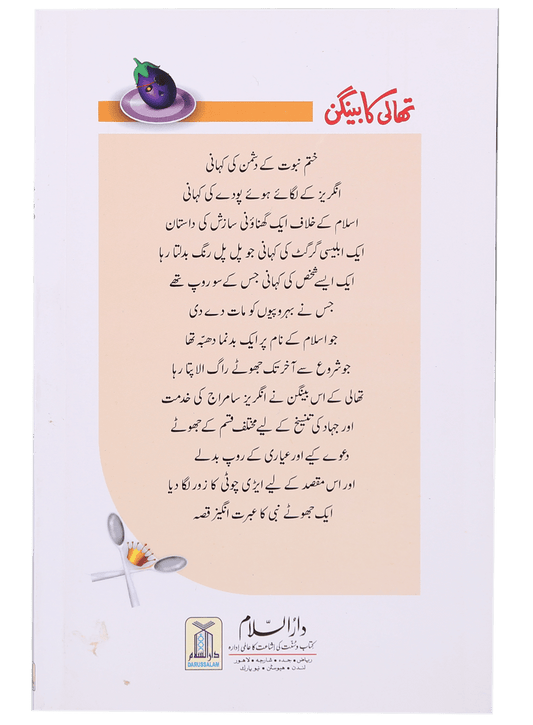 تھالی کا بینگن
ختم نبوت کے دشمن کی کہانی
انگریز کے لگائے ہوئے پودے کی کہانی
اسلام کے خلاف ایک گھناؤنی سازش کی داستان
ایک ابلیسی گرگٹ کی کہانی جو پل پل رنگ بدلتا رہا
ایک ایسے شخص کی کہانی جس کے سو روپ تھے
جس نے بہروپیوں کو مات دے دی
جو اسلام کے نام پر ایک بدنما دھبّہ تھا
جو شروع سے آخر تک جھوٹے راگ الاپتا رہا
تھالی کے اس بینگن نے انگریز سامراج کی خدمت
اور جہاد کی تنسیخ کے لیے مختلف قسم کے جھوٹے
دعوے کیے اور عیاری کے روپ بدلے
اور اس مقصد کے لیے ایڑی چوٹی کا زور لگا دیا
ایک جھوٹے نبی کا عبرت انگیز قصہ
دارالسّلام
کتاب و سنّت کی اشاعت کا عالمی ادارہ
ریاض • جدہ • شارجہ • لاہور
لندن • ہیوسٹن • نیو یارک
دارالسلام
DARUSSALAM